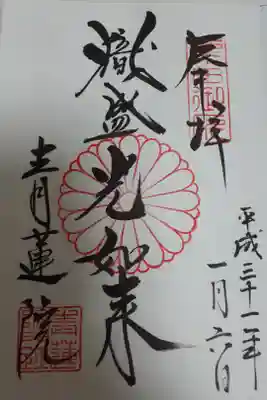 奉拝
平成三十一年
一月六日
熾盛光如来
青蓮院